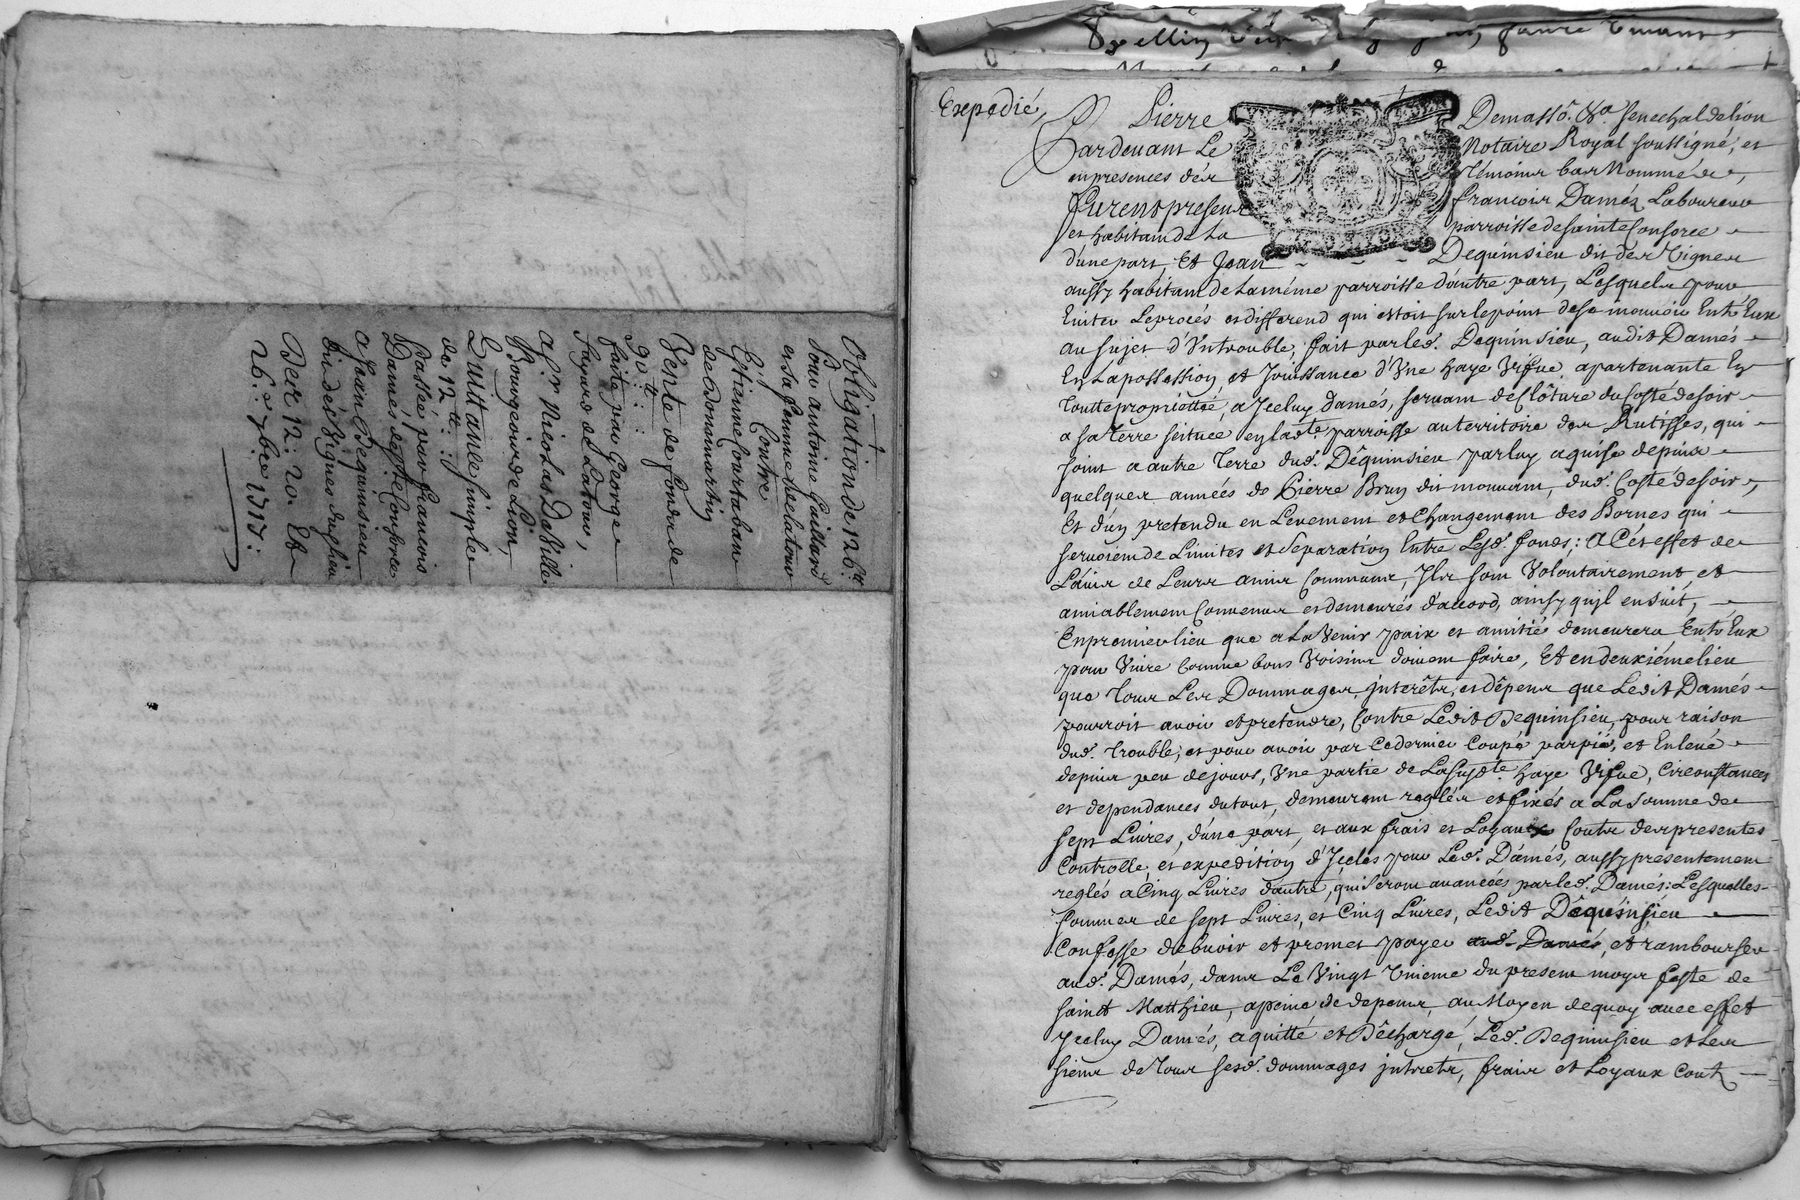 Obligation de 126ᵗᵗ
Pour antoine Gaillard
et sa femme de latour
Contre
Estienne Courtabau
de Dommartin
Vente de fonds de
90ᵗᵗ:
faite par George
fayard de Latour,
a Sʳ. Nicolas
Bourgeois de Lion,
Quittance simple
de 12ᵗᵗ:
Passée, par francois
Damés de Sᵗᵉ Consorce
a Jean Dequinsieu
dit des Vignes du lieu
Des 12. 20. Et
26. 7bre 1717:
Expedié,
Pierre Demasso. Sʳ. senechal de lion
Pardevant Le Notaire Royal soussigné, et
en presences des Témoins bas Nommés,
furent presens francois Damés Laboureur
et habitant de La parroisse de sainte Consorce
d'une part, Et Jean Dequinsieu dit des Vignes
aussy habitant de La même parroisse d'autre part, Lesquels pour
Eviter Le procés et differend qui estoit sur le point de se mouvoir Entr'Eux
au sujet d'Un trouble, fait par led. Dequinsieu, audit Damés
En La possession et Jouissance d'Une haye Vifve, apartenante En
Toutte proprietté, a Jceluy Damés, servant de Clôture du Costé de soir
a sa Terre scituee en ladᵗᵉ parroisse au territoire des Rutisses, qui
joint a autre Terre dud. Déquinsieu par luy aquise depuis
quelques années de Pierre Brun du mouvant, dud. Costé de soir,
Et d'un pretendu en Levement et Changement des Bornes qui
servoient de Limites et Separation Entre Lesd. fonds; A Cét effet de
L'avis de Leurs amis Communs, Jls sont Volontairement et
amiablement Convenus et demeurés d'accord, ainsy qu'il en suit,
En premier lieu que a La Venir paix et amitié demeurera Entr'Eux
pour Vivre Comme bons Voisins doivent faire, Et en deuxiéme lieu
que Tous Les Dommages, jnterêts, et dépens que Ledit Damés
pourroit avoir et pretendre, Contre Ledit Dequinsieu, pour raison
dud. Trouble, et pour avoir par Ce dernier Coupé par pié, et Enlevé
depuis peu de jours, Une partie de La susdᵗᵉ haye Vifve, Circonstances
et dependances du tout, demeurent reglés et fixés a La somme de
sept Livres, d'une part, et aux frais et Loyaux Couts des presentes
Controlle, et expedition d'Jcelles pour Led. Damés, aussy presentement
reglés a Cinq Livres d'autre, qui seront avancées par led. Damés: Lesquelles
sommes de sept Livres, et Cinq Livres, Ledit Déquinsieu
Confesse debvoir et promet payer aud. Damés, et rembourser
aud. Damés, dans Le Vingt Unieme du present moys feste de
sainct Matthieu, apeine de depens, au Moyen de quoy avec effet
Jceluy Damés, aquitté et Décharge, Led. Dequinsieu et les
siens de Tous sesd. dommages jnterets, frais et Loyaux Couts